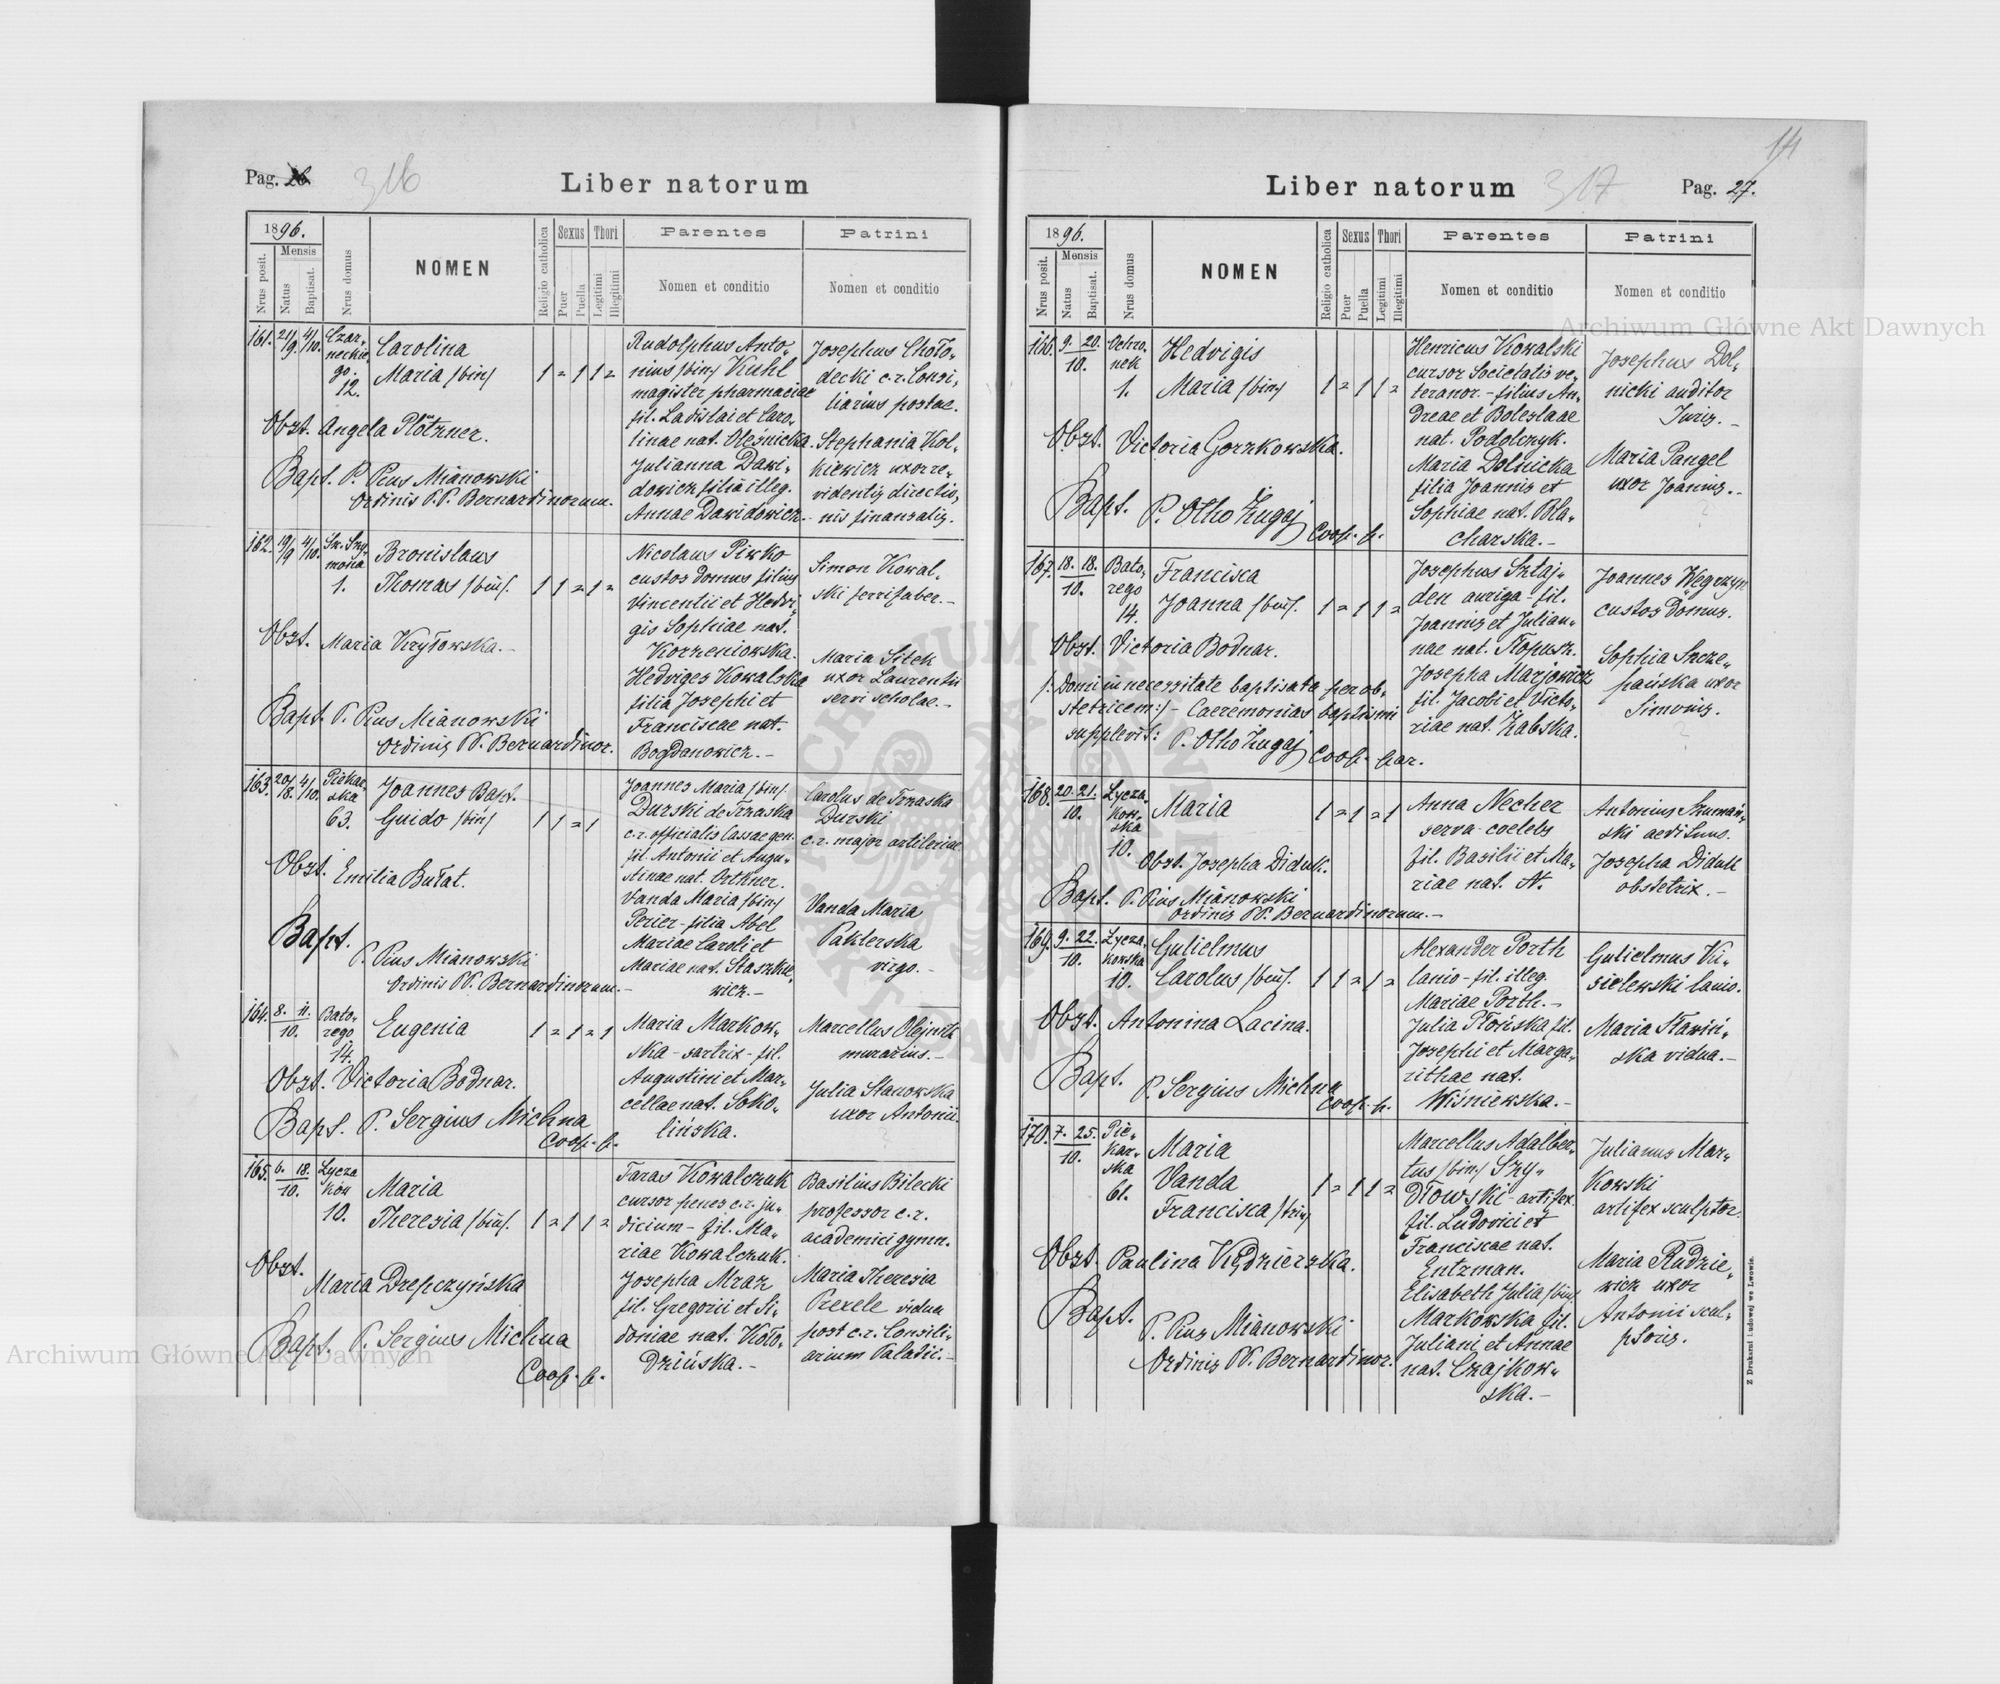 Pag. 26.
316
Liber natorum
1896.
Nrus posit.
Mensis
Natus
Baptisat.
Nrus domus
NOMEN
Religio catholica
Sexus
Puer
Puella
Thori
Legitimi
Illegitimi
Parentes
Nomen et conditio
Patrini
Nomen et conditio
161. 21/9. 4/10. Czar„
neckie„
go.
12.
Carolina
Maria /bin/
1 = 1 1 =
Obst. Angela Plötzner.
Bapt. P. Pius Mianowski
Ordinis P.P. Bernardinorum.
Rudolphus Anto„
nius /bin/ Kuhl
magister pharmaciae
fil. Ladislai et Caro„
linae nat. Oleśnicka.
Julianna Dawi„
dowicz filia illeg.
Annae Dawidowicz.
Josephus Choło„
decki c.r. Consi„
liarius postae.
Stephania Kol„
kiewicz uxor re„
videntis directio„
nis finansalis.
162. 19/9 4/10. Św. Szy„
mona
1.
Bronislaus
Thomas /bin/.
1 1 = 1 =
Obst. Maria Kryłowska.-
Bapt. P. Pius Mianowski
Ordinis PP. Bernardinor.
Nicolaus Piwko
custos domus filius
Vincentii et Hedvi„
gis Sophiae nat.
Korzeniowska.
Hedviges Kowalska
filia Josephi et
Franciscae nat.
Bogdanowicz.-
Simon Kowal„
ski ferrifaber.-
Maria Sitek
uxor Laurentii
servi scholae.-
163. 20/8. 4/10. Piekar„
ska
63.
Joannes Bapt.
Guido /bin/
1 1 = 1
Obst. Emilia Bułat.
Bapt.
P. Pius Mianowski
Ordinis PP. Bernardinorum.-
Joannes Maria /bin/.
Durski de Trzaska
c.r. officialis Cassae gen.
fil. Antonii et Augu„
stinae nat. Ortkner.
Vanda Maria /bin/
Perier - filia Abel
Mariae Caroli et
Mariae nat. Staszkie„
wicz.-
Carolus de Trzaska
Durski
c.r. major artileriae
Vanda Maria
Paklerska
virgo.-
164. 8. 11. Bato„
10. rego
14.
Eugenia
1 = 1 = 1
Obst. Victoria Bodnar.
Bapt. P. Sergius Michna
Coop. p.
Maria Markow„
ska - sartrix - fil.
Augustini et Mar„
cellae nat. Soko„
lińska.
Marcellus Olejnik
murarius.-
Julia Stanowska
uxor Antonii.
165. 6. 18. Lycza
10. kow
10.
Maria
Theresia /bin/.
1 = 1 1 =
Obst.
Maria Drepczyńska
Bapt. P. Sergius Michna
Coop. p.
Taras Kowalczuk
cursor penes c.r. ju„
dicium - fil. Ma„
riae Kowalczuk.
Josepha Mraz
fil. Gregorii et Si„
doniae nat. Koło„
dzińska.-
Basilius Bilecki
professor c.r.
academici gymn.
Maria Theresia
Prexele vidua
post c.r. Consili„
arium Palatii.-
14
Liber natorum
317
Pag. 27.
1896.
Nrus posit.
Mensis
Natus
Baptisat.
Nrus domus
NOMEN
Religio catholica
Sexus
Puer
Puella
Thori
Legitimi
Illegitimi
Parentes
Nomen et conditio
Patrini
Nomen et conditio
166. 9. 20. Ochro„
10. nek
1.
Hedvigis
Maria /bin/
1 = 1 1 =
Obst. Victoria Gorzkowska.
Bapt. P. Otho Zugaj
Coop. p.
Henricus Kowalski
cursor Societatis ve„
teranor. - filius An„
dreae et Boleslaae
nat. Podolczyk.
Maria Dolnicka
filia Joannis et
Sophiae nat. Bla„
charska.-
Josephus Dol„
nicki auditor
Juris.-
Maria Pangel
uxor Joannis.-
167. 18. 18. Bato„
10. rego
14.
Francisca
Joanna /bin/.
1 = 1 1 =
Obst. Victoria Bodnar.
/: Domi in necessitate baptisata per ob„
stetricem :/ - Caeremonias baptismi
supplevit: P. Otho Zugaj
Coop. par.
Josephus Sztaj„
den auriga - fil.
Joannis et Julian„
nae nat. Łopusz.
Josepha Marjowicz
fil. Jacobi et Victo„
riae nat. Żabska.
Joannes Węgrzyn
custos domus.
Sophia Szcze„
pańska uxor
Simonis.
168. 20. 21. Lycza„
10. kow„
ska
10.
Maria
1 = 1 = 1
Obst. Josepha Diduk.
Bapt. P. Pius Mianowski
Ordinis PP. Bernardinorum.-
Anna Necher
serva coelebs
fil. Basilii et Ma„
riae nat. N.
Antonius Szumań„
ski aedituus.
Josepha Diduk
obstetrix.-
169. 9. 22. Lycza„
10. kowska
10.
Gulielmus
Carolus /bin/.
1 1 = 1 =
Obst. Antonina Lacina.
Bapt. P. Sergius Michna
Coop. p.
Alexander Porth
lanio - fil. illeg.
Mariae Porth.-
Julia Płońska fil.
Josephi et Marga„
rithae nat.
Wiśniewska.-
Gulielmus Ki„
sielewski lanio.
Maria Sławiń„
ska vidua.-
170. 7. 25. Pie„
10. kar„
ska
61.
Maria
Vanda
Francisca /trin/
1 = 1 1 =
Obst. Paulina Kędzierska.
Bapt.
P. Pius Mianowski
Ordinis PP. Bernardinor.
Marcellus Adalber„
tus /bin/ Szy„
dłowski - artifex
fil. Ludovici et
Franciscae nat.
Entzman.
Elisabeth Julia /bin/
Markowska fil.
Juliani et Annae
nat. Czajkow„
ska.-
Julianus Mar„
kowski
artifex sculptor.
Maria Rudzie„
wicz uxor
Antonii scul„
ptoris.
Z Drukarni Ludowej we Lwowie.
Archiwum Główne Akt Dawnych
Archiwum Główne Akt Dawnych